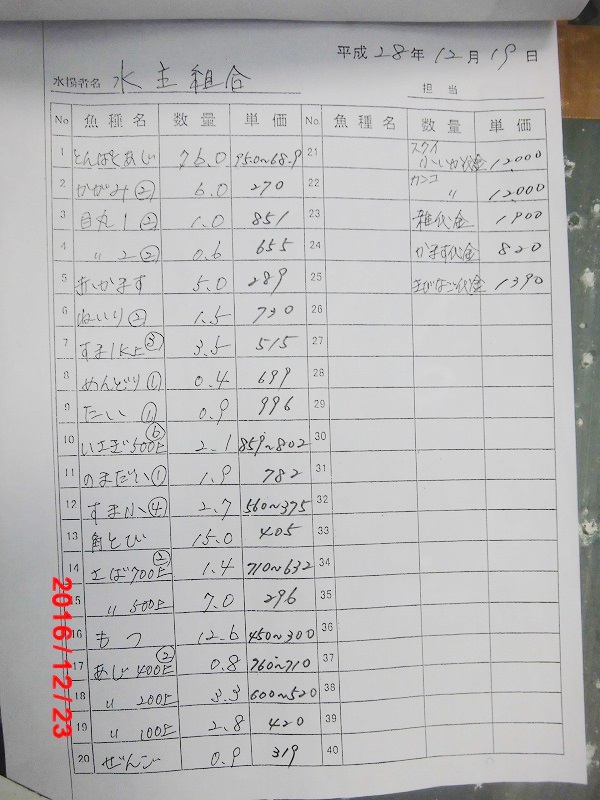 平成28年12月19日
水揚者名 水主組合
担当
No. 魚種名 数量 単価 No. 魚種名 数量 単価
1 とんぼとあじ 76.0 950~68.9 21 スクイ 小いか代金 12,000
2 かがみ② 6.0 270 22 カンコ 〃 12,000
3 目丸1② 1.0 851 23 雑代金 1900
4 〃2② 0.6 655 24 かます代金 820
5 赤かます 5.0 289 25 代金 1390
6 ② 1.5 730 26
7 すま1K上③ 3.5 515 27
8 めんどり① 0.4 699 28
9 たい① 0.9 996 29
10 いさぎ500上⑥ 2.1 859~802 30
11 のまだい① 1.9 782 31
12 すま小④ 2.7 560~375 32
13 角とび 15.0 405 33
14 さば700上② 1.4 710~632 34
15 〃500上 7.0 296 35
16 もつ 12.6 450~300 36
17 あじ400上② 0.8 760~710 37
18 〃200上 3.3 600~520 38
19 〃100上 2.8 420 39
20 ぜんご 0.9 319 40
2016/12/23